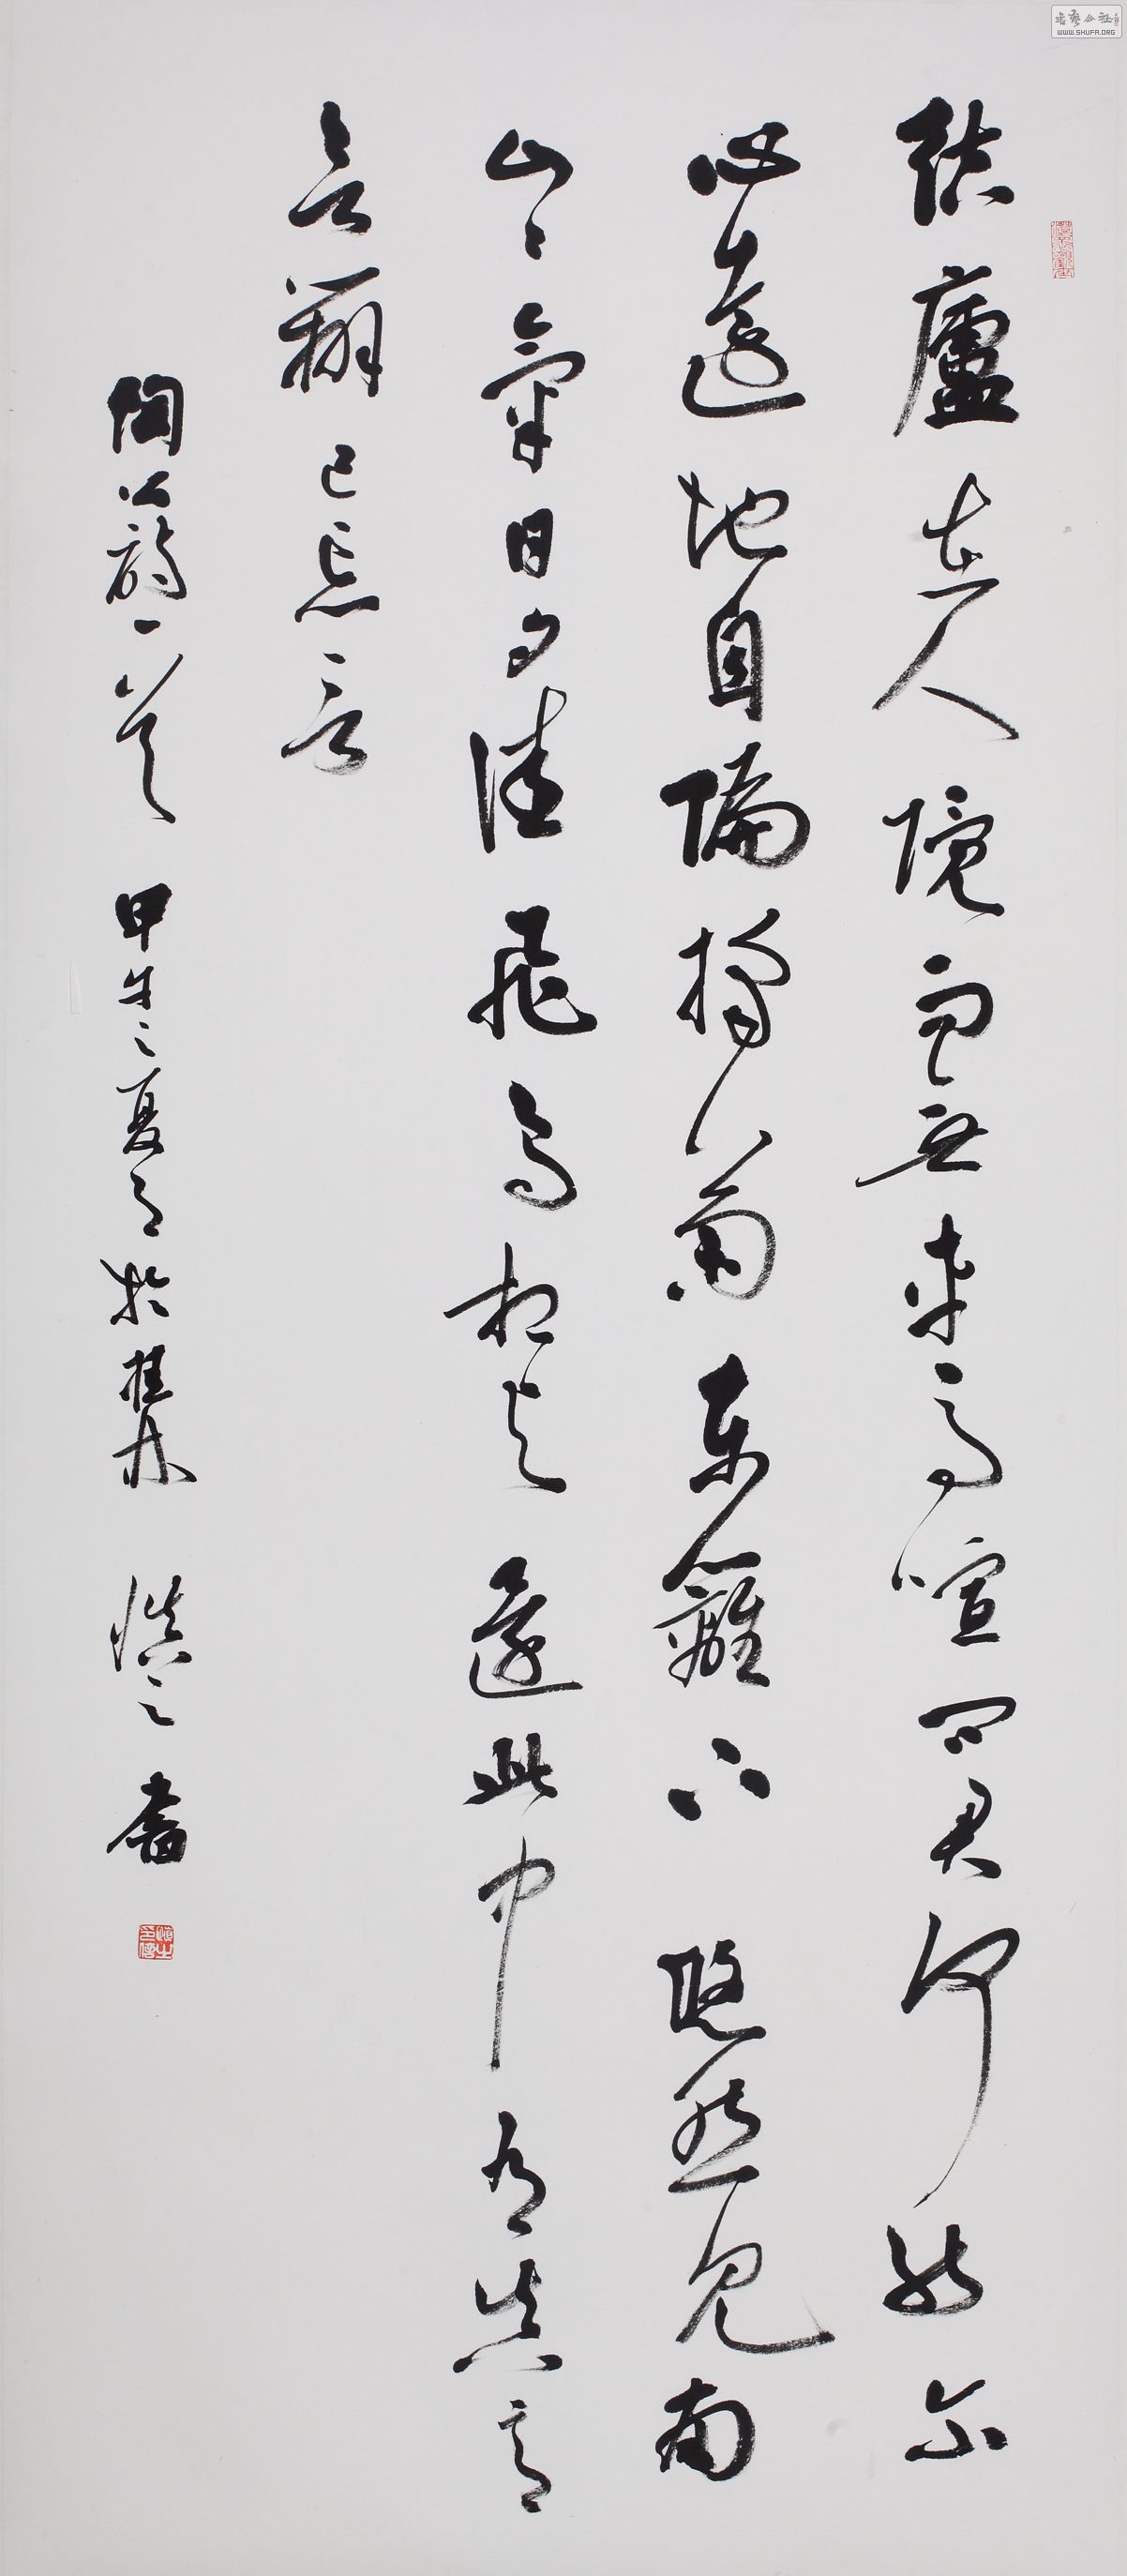 結廬在人境而無車馬喧問君何能尔
心遠地自偏採菊東籬下悠然見南
山〻氣日夕佳飛鳥相與還此中有真意
欲辯已忘言
陶公詩一首 甲午之夏月於桂林 慎之書
慎之印信
書藝公社
WWW.SHUFA.ORG